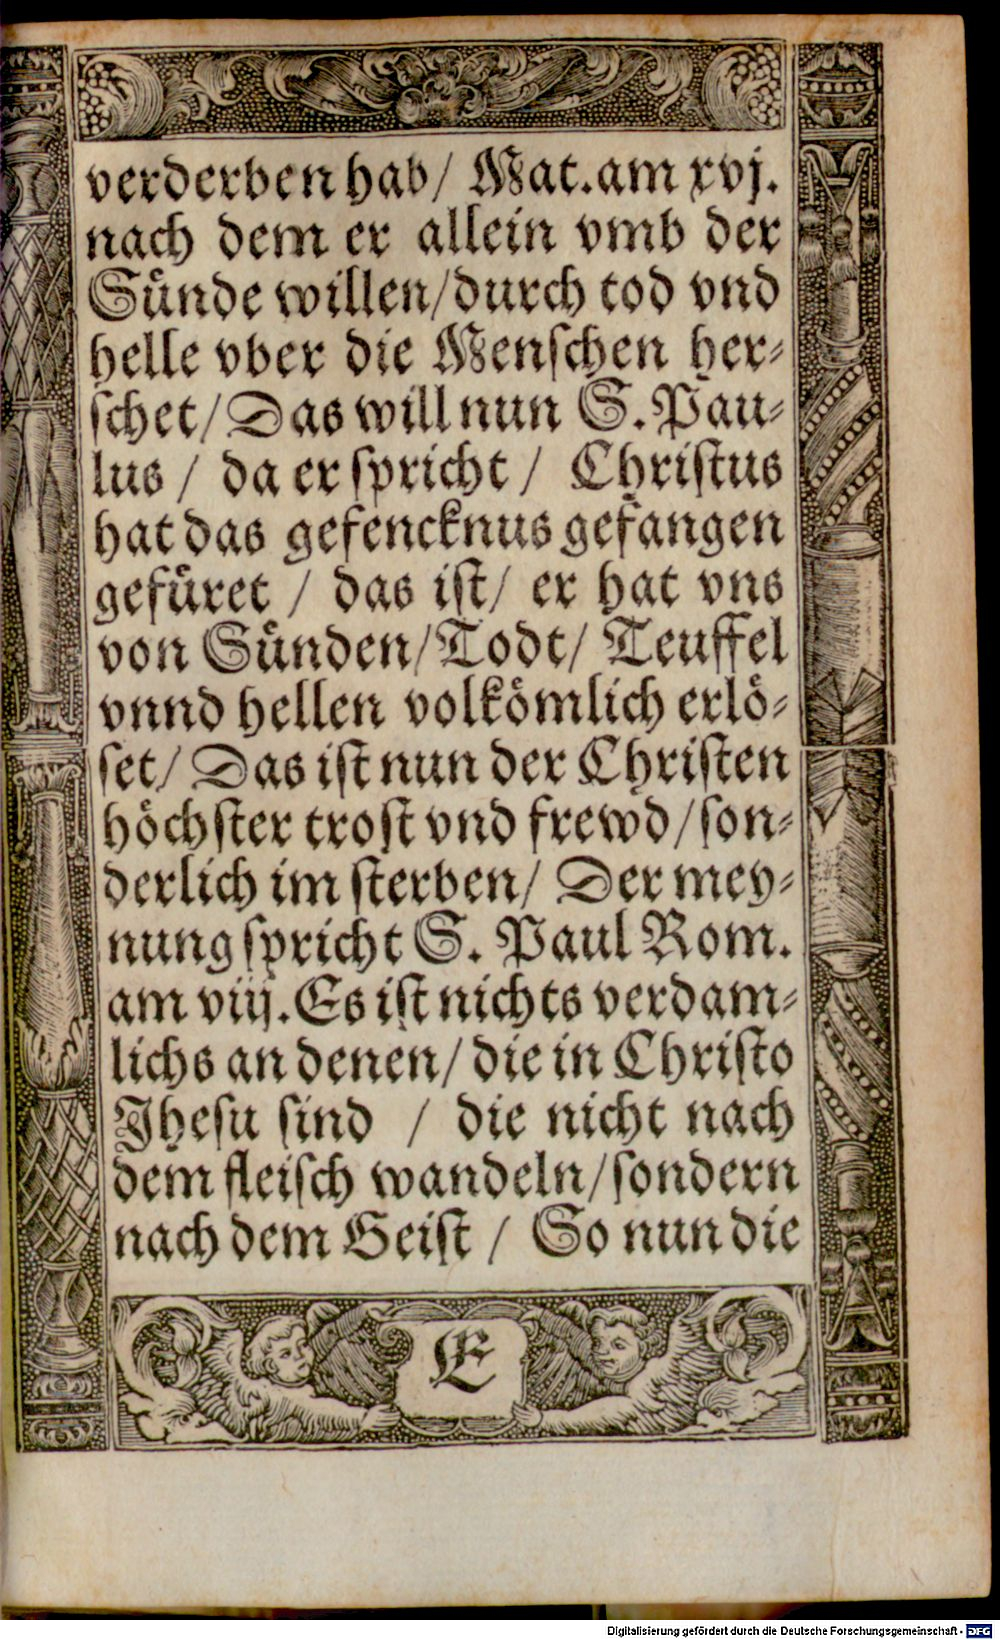 verderben hab/ Mat. am xvj.
nach dem er allein vmb der
Sünde willen/durch tod vnd
helle vber die Menschen her⸗
schet/ Das will nun S. Pau⸗
lus / da er spricht / Christus
hat das gefencknus gefangen
gefüret / das ist/ er hat vns
von Sünden/Todt/ Teuffel
vnnd hellen volkömlich erlö⸗
set/ Das ist nun der Christen
höchster trost vnd frewd/son⸗
derlich im sterben/ Der mey⸗
nung spricht S. Paul Rom.
am viij. Es ist nichts verdam⸗
lichs an denen/ die in Christo
Jhesu sind / die nicht nach
dem fleisch wandeln/sondern
nach dem Geist / So nun die
E
Digitalisierung gefördert durch die Deutsche Forschungsgemeinschaft - DFG